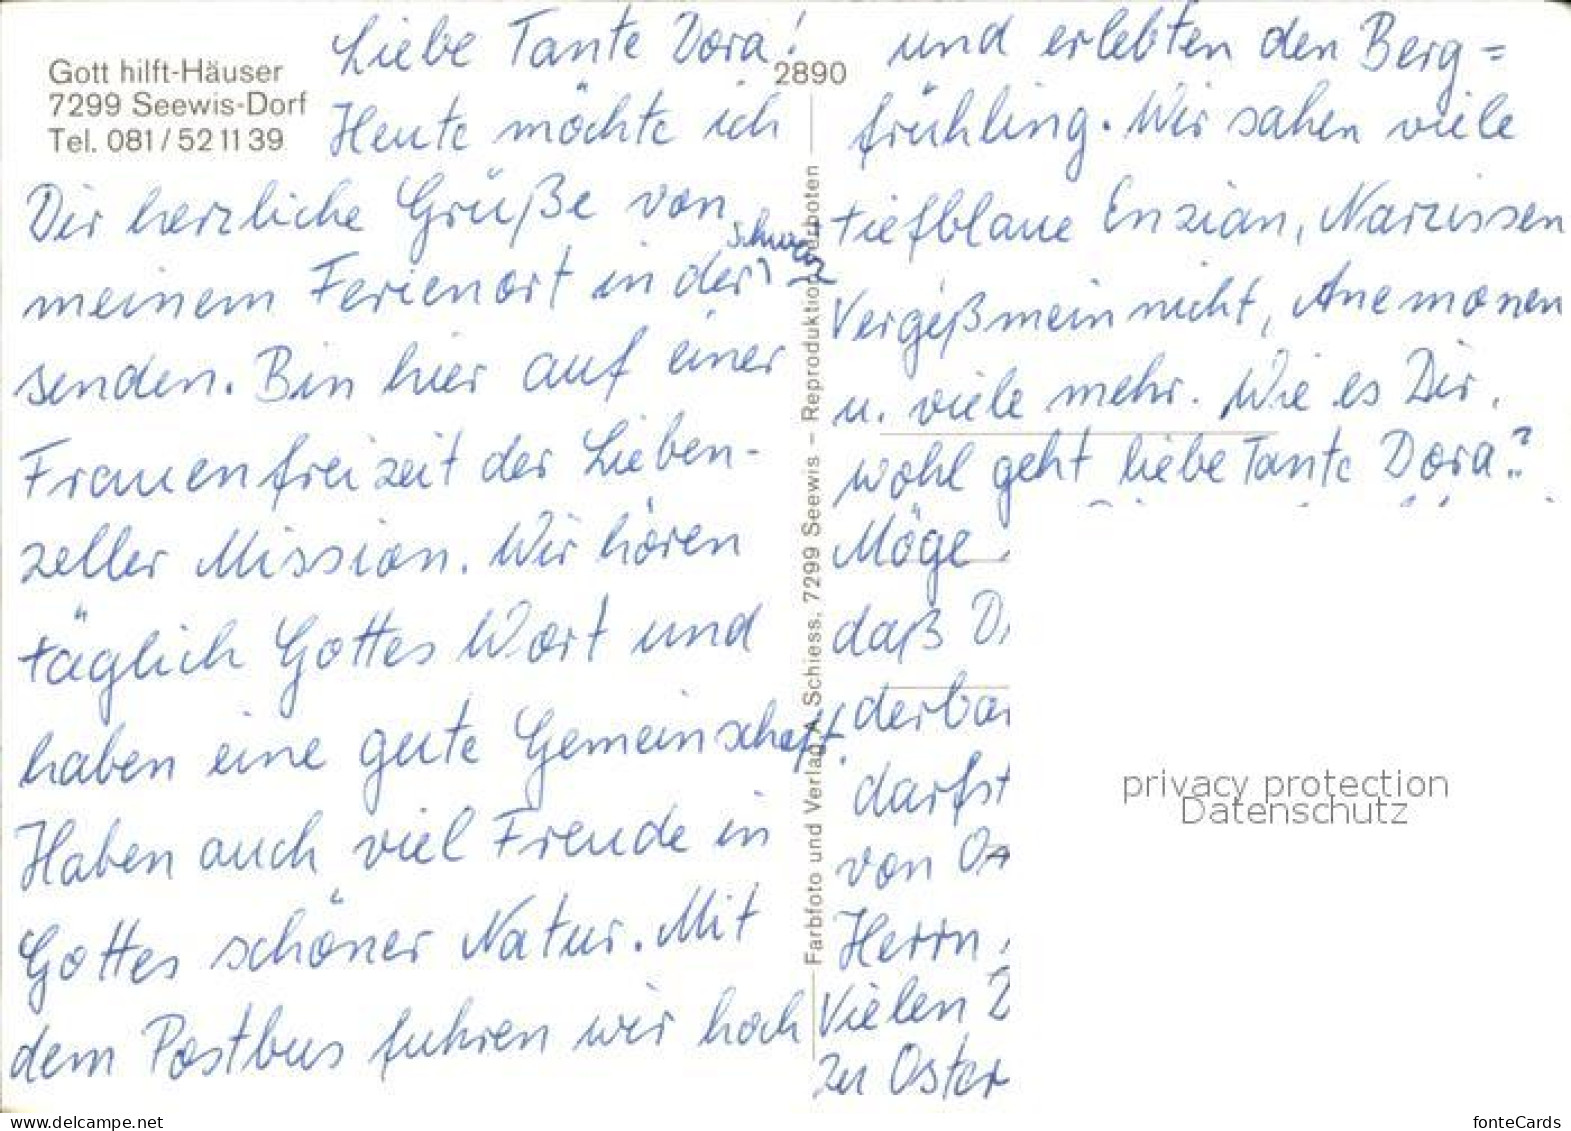 Gott hilft-Häuser
7299 Seewis-Dorf
Tel. 081/52 11 39
2890
Liebe Tante Dora!
Heute möchte ich
Dir herzliche Grüße von
meinem Ferienort in der Schweiz
senden. Bin hier auf einer
Frauenfreizeit der Lieben-
zeller Mission. Wir hören
täglich Gottes Wort und
haben eine gute Gemeinschaft.
Haben auch viel Freude in
Gottes schöner Natur. Mit
dem Postbus fuhren wir hoch
Farbfoto und Verlag A. Schiess, 7299 Seewis – Reproduktion verboten
und erlebten den Berg=
frühling. Wir sahen viele
tiefblaue Enzian, Narzissen
Vergißmeinnicht, Anemonen
u. viele mehr. Wie es Dir
wohl geht liebe Tante Dora?
Möge
daß
derbar
darfst
von
Herrn
Vielen
zu Oster
privacy protection
Datenschutz
www.delcampe.net
fonteCards